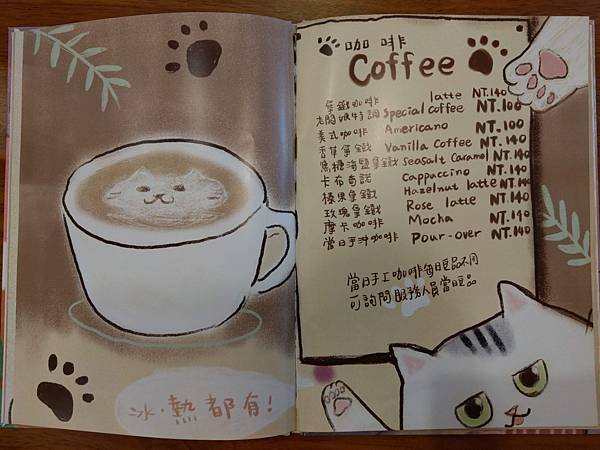 冰．熱都有！
咖啡
Coffee
拿鐵咖啡 latte NT.140
老闆娘特調 Special coffee NT.100
美式咖啡 Americano NT.100
香草拿鐵 Vanilla Coffee NT.140
焦糖海鹽拿鐵 Seasalt Caramel NT.140
卡布奇諾 Cappuccino NT.140
榛果拿鐵 Hazelnut latte NT.140
玫瑰拿鐵 Rose latte NT.140
摩卡咖啡 Mocha NT.140
當日手沖咖啡 Pour-over NT.140
當日手工咖啡每日豆品不同
可詢問服務人員當日豆品